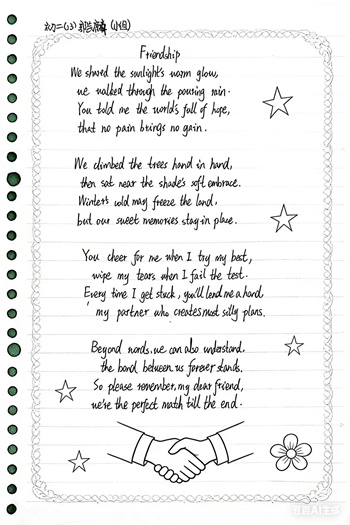 初二(3) (小组)
Friendship
We shared the sunlight's warm glow,
we walked through the pouring rain.
You told me the world's full of hope,
that no pain brings no gain.
We climbed the trees hand in hand,
then sat near the shade's soft embrace.
Winter's cold may freeze the land,
but our sweet memories stay in place.
You cheer for me when I try my best,
wipe my tears when I fail the test.
Every time I get stuck, you'll lend me a hand,
my partner who creates most silly plans.
Beyond words, we can also understand,
the bond between us forever stands.
So please remember, my dear friend,
we're the perfect match till the end.
豆包AI生成